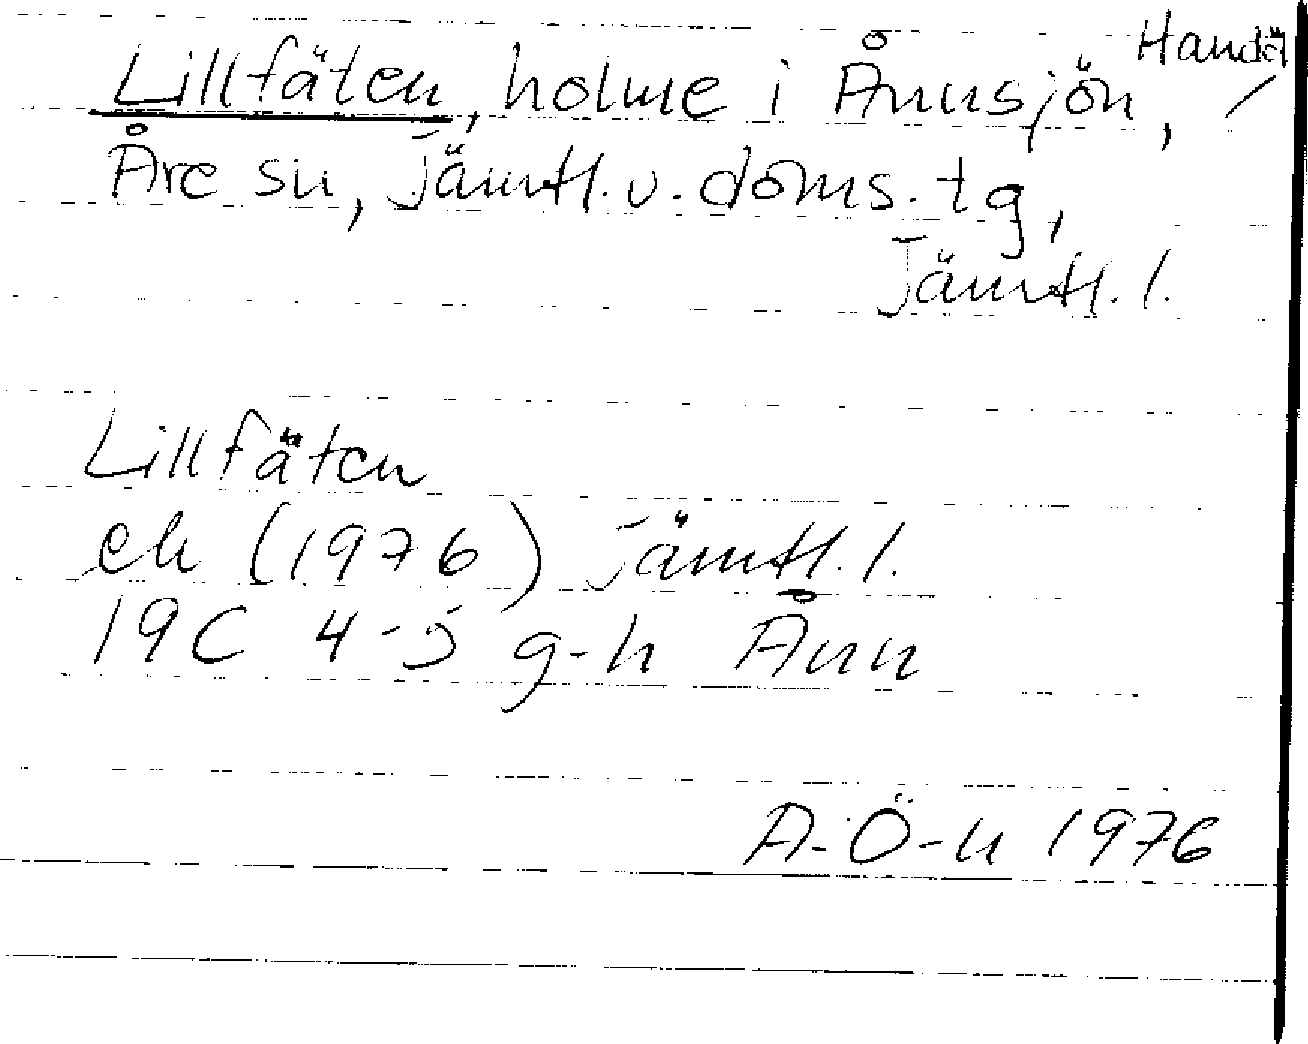 Handöl
Lillfäten, holme i Ånnsjön, /
Åre sn, Jämtl. v. doms. tg,
Jämtl. l.
Lillfäten
ek (1976) Jämtl. l.
19C 4-5 g-h Ånn
A-Ö-n 1976